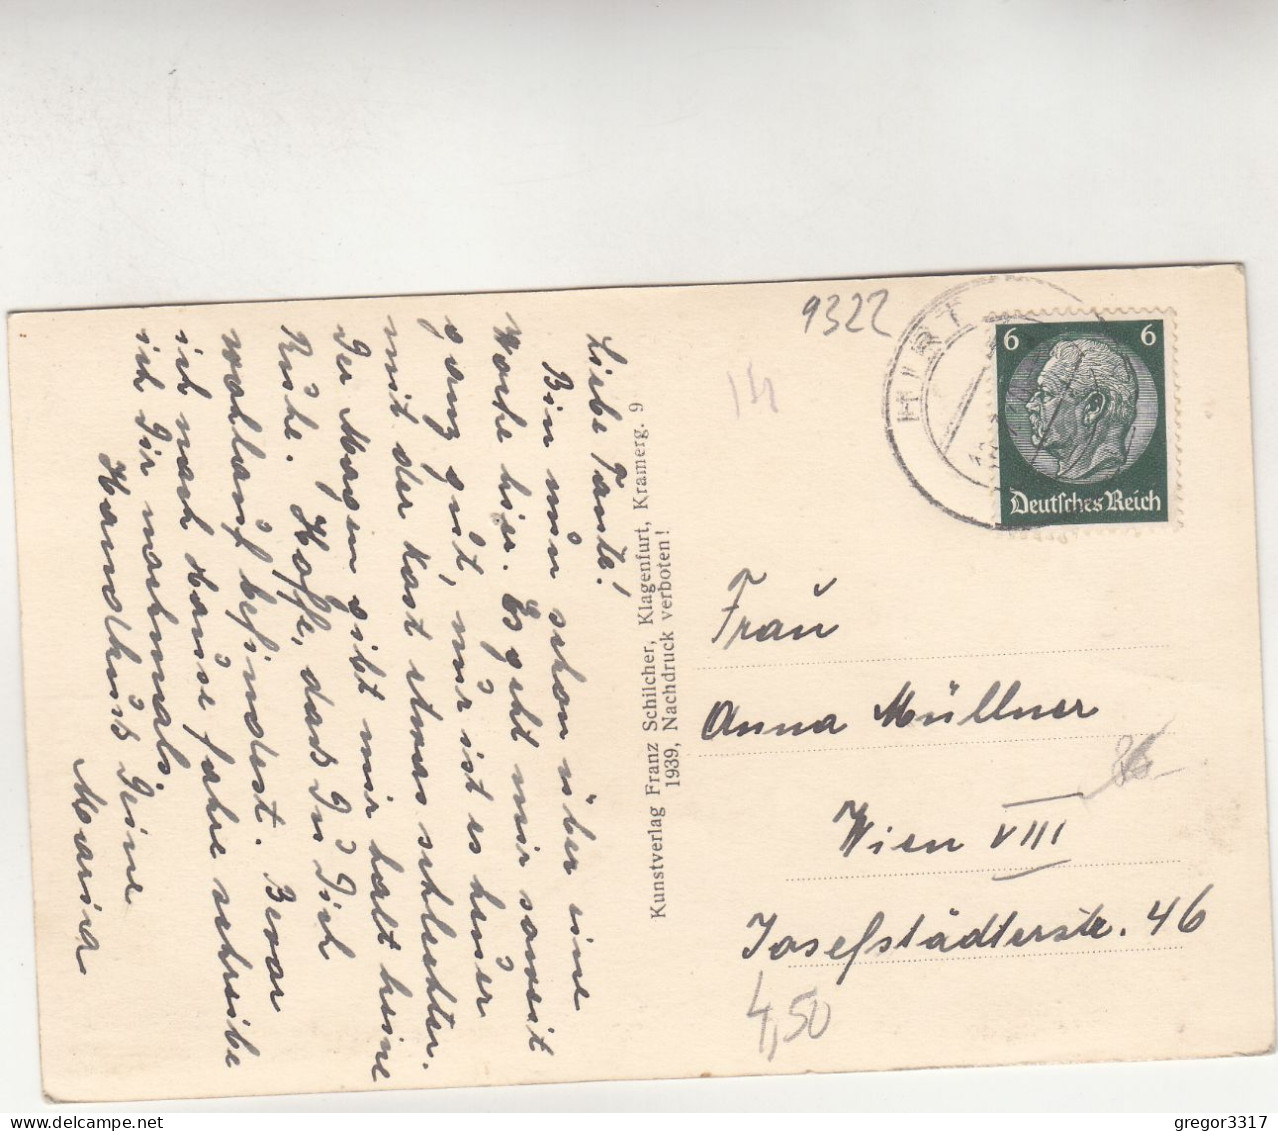 Liebe Tante!
Bin nun schon über eine
Woche hier. Es geht mir soweit
ganz gut, nur ist es heuer
mit der Kost etwas schlechter.
Der Magen gibt mir halt keine
Ruhe. Hoffe, dass Du Dich
wohlauf befindest. Bevor
ich nach Hause fahre schreibe
ich Dir nochmals.
Handkuß Deine
Maria
Kunstverlag Franz Schilcher, Klagenfurt, Kramerg. 9
1939, Nachdruck verboten!
9322
HIRT
6 6
Deutsches Reich
Frau
Anna Müllner
Wien VIII
Josefstädterstr. 46
4,50
gregor3317